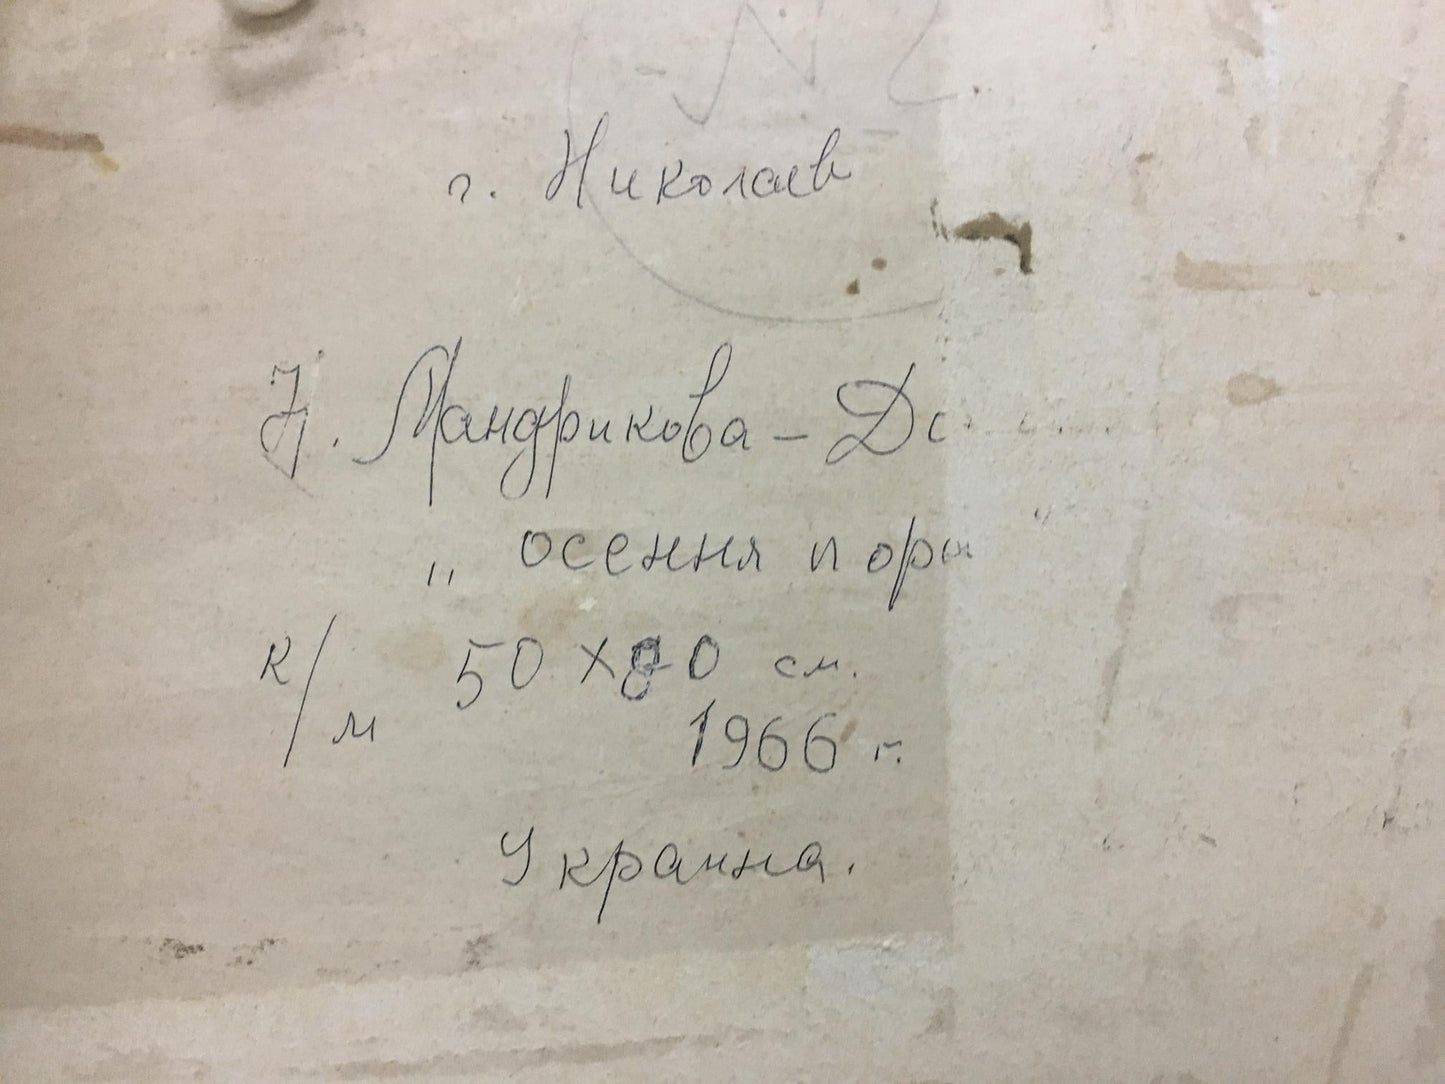 N 2
г. Николаев
Н. Мандрикова-До
„осення пора"
к/м 50 х 80 см.
1966 г.
Украина.